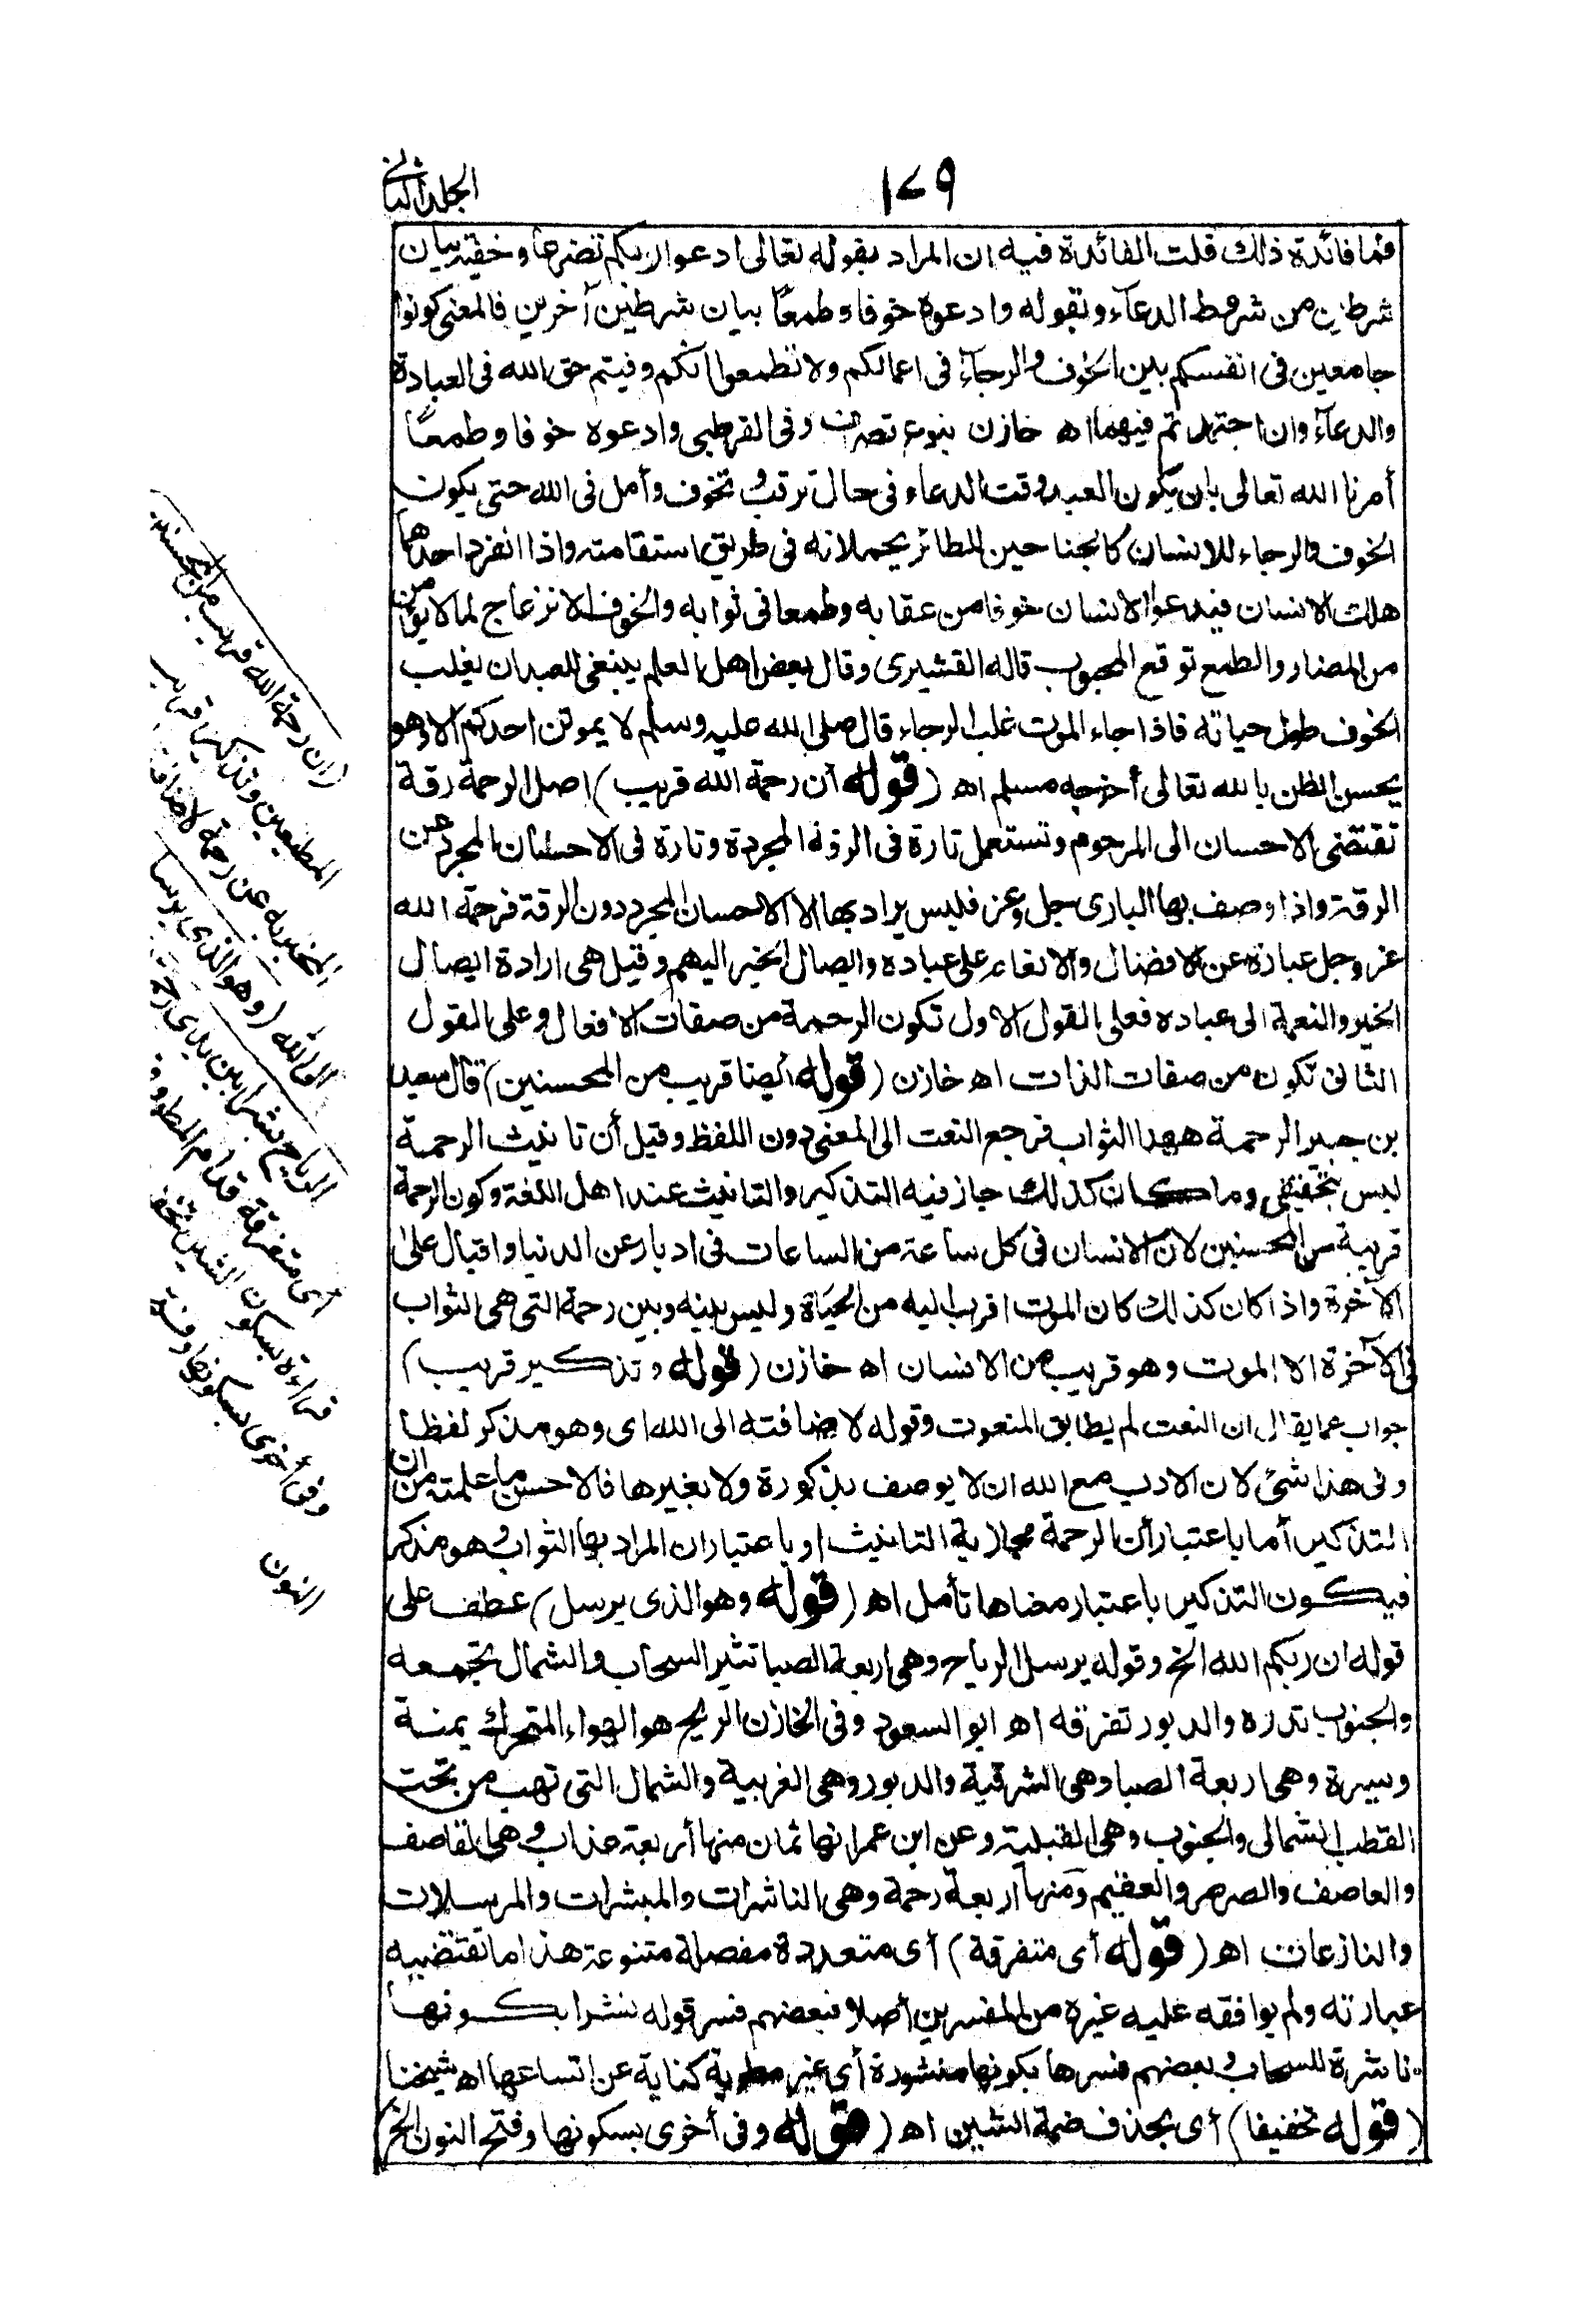 ١٧٩
الجلد الثانى
فما فائدة ذلك قلت الفائدة فيه ان المراد بقوله تعالى ادعوا ربكم تضرعا وخفية بيان
شرطين من شروط الدعآء وبقوله وادعوه خوفا وطمعًا بيان شرطين آخرين فالمعنى كونوا
جامعين فى انفسكم بين الخوف والرجآء فى اعمالكم ولا تطمعوا انكم وفيتم حق الله فى العبادة
والدعآء وان اجتهدتم فيهما اه خازن بنوع تصرف وفى القرطبى وادعوه خوفا وطمعًا
أمرنا الله تعالى بان يكون العبد وقت الدعاء فى حال ترقب و تخوف وأمل فى الله حتى يكون
الخوف والرجاء للانسان كالجناحين للطائر يحملانه فى طريق استقامته واذا انفرد احدهما
هلك الانسان فيدعوا الانسان خوفا من عقابه وطمعا فى ثوابه والخوف الانزعاج لما لا يؤمن
من المضار والطمع توقع المحبوب قاله القشيرى وقال بعض اهل العلم ينبغى للعبد ان يغلب
الخوف طول حياته فاذا جاء الموت غلب الرجاء قال صلى الله عليه وسلم لا يموتن احدكم الا وهو
يحسن الظن بالله تعالى أخرجه مسلم اه (قوله ان رحمة الله قريب) اصل الرحمة رقة
تقتضى الاحسان الى المرحوم وتستعمل تارة فى الرقة المجردة وتارة فى الاحسان المجرد عن
الرقة واذا وصف بها البارى جل وعز فليس يراد بها الا الاحسان المجرد دون الرقة فرحمة الله
عز وجل عبارة عن الافضال والانعام على عباده وايصال الخير اليهم وقيل هى ارادة ايصال
الخير والنعمة الى عباده فعلى القول الاول تكون الرحمة من صفات الافعال وعلى القول
الثانى تكون من صفات الذات اه خازن (قوله ايضا قريب من المحسنين) قال سعيد
بن جبير الرحمة ههنا الثواب فرجع النعت الى المعنى دون اللفظ وقيل أن تانيث الرحمة
ليس بحقيقى وما كان كذلك جاز فيه التذكير والتانيث عند اهل اللغة وكون الرحمة
قريبة من المحسنين لان الانسان فى كل ساعة من الساعات فى ادبار عن الدنيا واقبال على
الآخرة واذا كان كذلك كان الموت اقرب اليه من الحياة وليس بينه وبين رحمة التى هى الثواب
فى الآخرة الا الموت وهو قريب من الانسان اه خازن (قوله وتذكير قريب)
جواب عما يقال ان النعت لم يطابق المنعوت وقوله لاضافته الى الله اى وهو مذكر لفظا
وفى هذا شئ لان الادب مع الله ان لا يوصف بذكورة ولا بغيرها فالاحسن ما علمته من ان
التذكير أما باعتبار أن الرحمة مجازية التانيث او باعتبار ان المراد بها الثواب وهو مذكر
فيكون التذكير باعتبار معناها تأمل اه (قوله وهو الذى يرسل) عطف على
قوله ان ربكم الله الخ وقوله يرسل الرياح وهى اربعة الصبا تثير السحاب والشمال تجمعه
والجنوب تدره والدبور تفرقه اه ابو السعود وفى الخازن الريح هو الهواء المتحرك يمنة
ويسرة وهى اربعة الصبا وهى الشرقية والدبور وهى الغربية والشمال التى تهب من تحت
القطب الشمالى والجنوب وهى القبلية وعن ابن عمر انها ثمان منها أربعة عذاب وهى القاصف
والعاصف والصرصر والعقيم ومنها اربعة رحمة وهى الناشرات والمبشرات والمرسلات
والنازعات اه (قوله أى متفرقة) أى متعددة مفصلة متنوعة هذا ما تقتضيه
عبارته ولم يوافقه عليه غيره من المفسرين أصلا فبعضهم فسر قوله نشرا بكونها
ناشرة للسحاب وبعضهم فسرها بكونها منشورة أى غير مطوية كناية عن اتساعها اه شيخنا
(قوله تخفيفا) أى بحذف ضمة الشين اه (قوله وفى أخرى بسكونها وفتح النون الخ)
(ان رحمة الله قريب من المحسنين)
المطيعين وتذكير قريب
المخبر به عن رحمة لاضافته
الى الله (وهو الذى يرسل
الرياح نشرا بين يدى رحمته)
أى متفرقة قدام المطر وفى
قراءة بسكون الشين تخفيفا
وفى أخرى بسكونها وفتح
النون